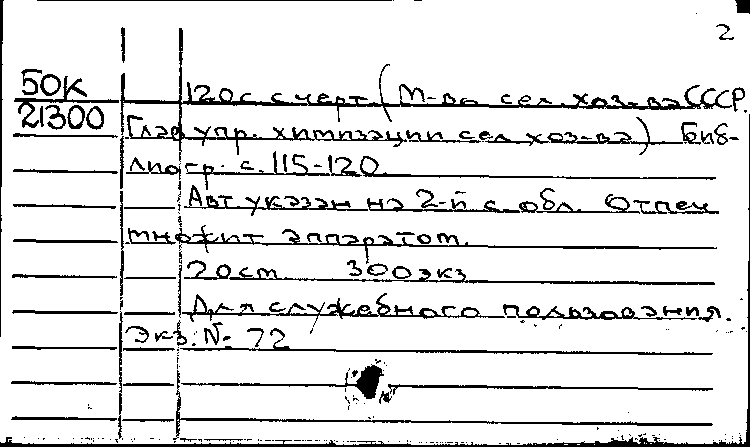 2
50К
21300
120с. с черт. (М-во сел. хоз-ва СССР.
Глав упр. химизации сел. хоз-ва) Биб-
лиогр. с. 115-120.
Авт. указан на 2-й с. обл. Отпеч
множит аппаратом.
20см 300экз
Для служебного пользования.
Экз. № 72